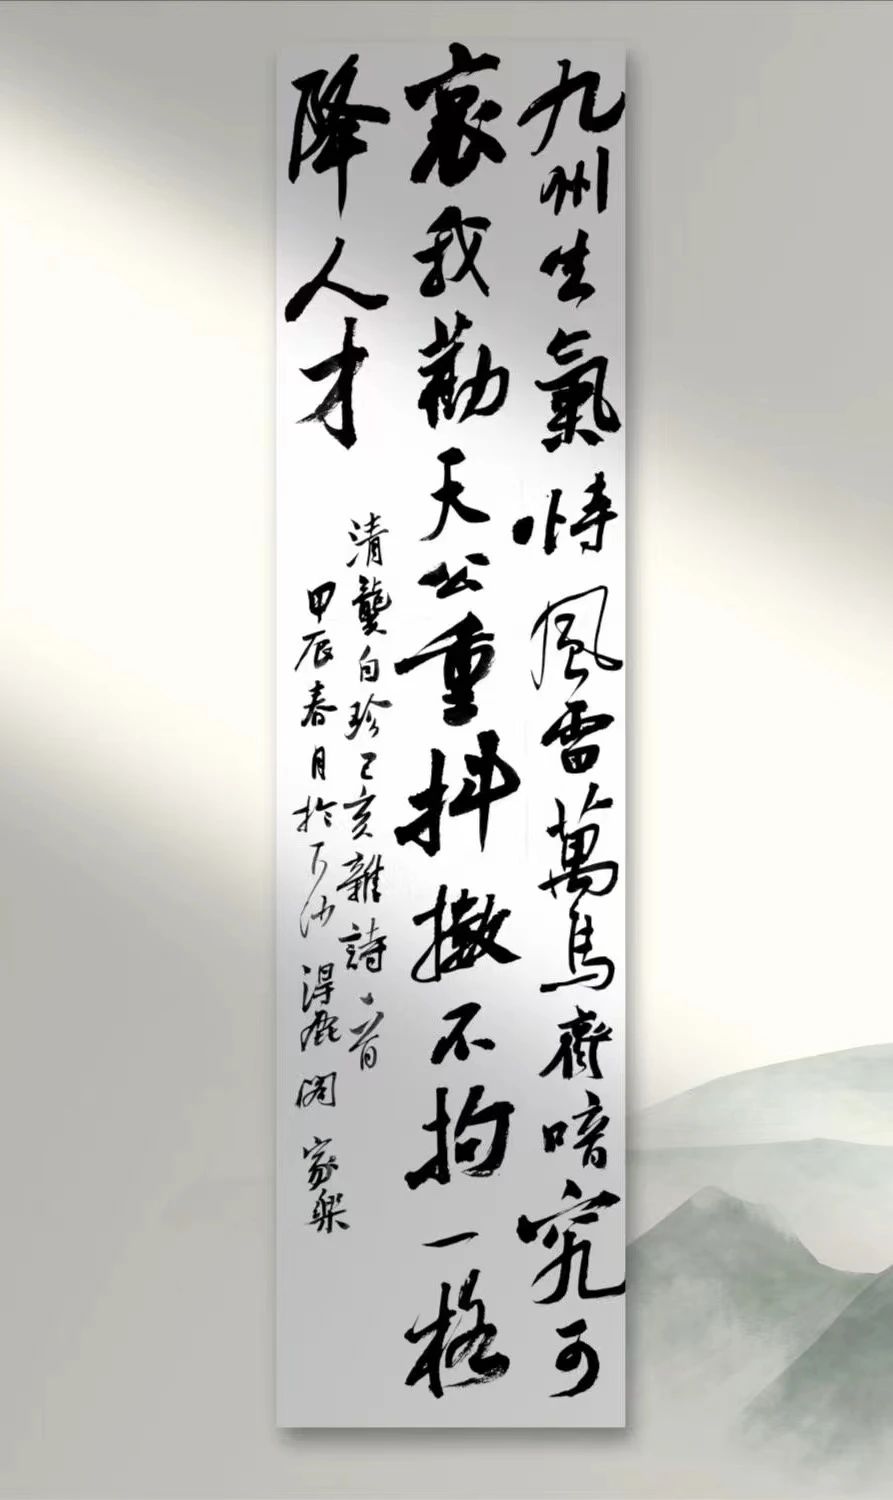 九州生氣恃風雷萬馬齊喑究可
哀我勸天公重抖擻不拘一格
降人才
清龔自珍己亥雜詩一首
甲辰春月於下沙得鹿閣家樂